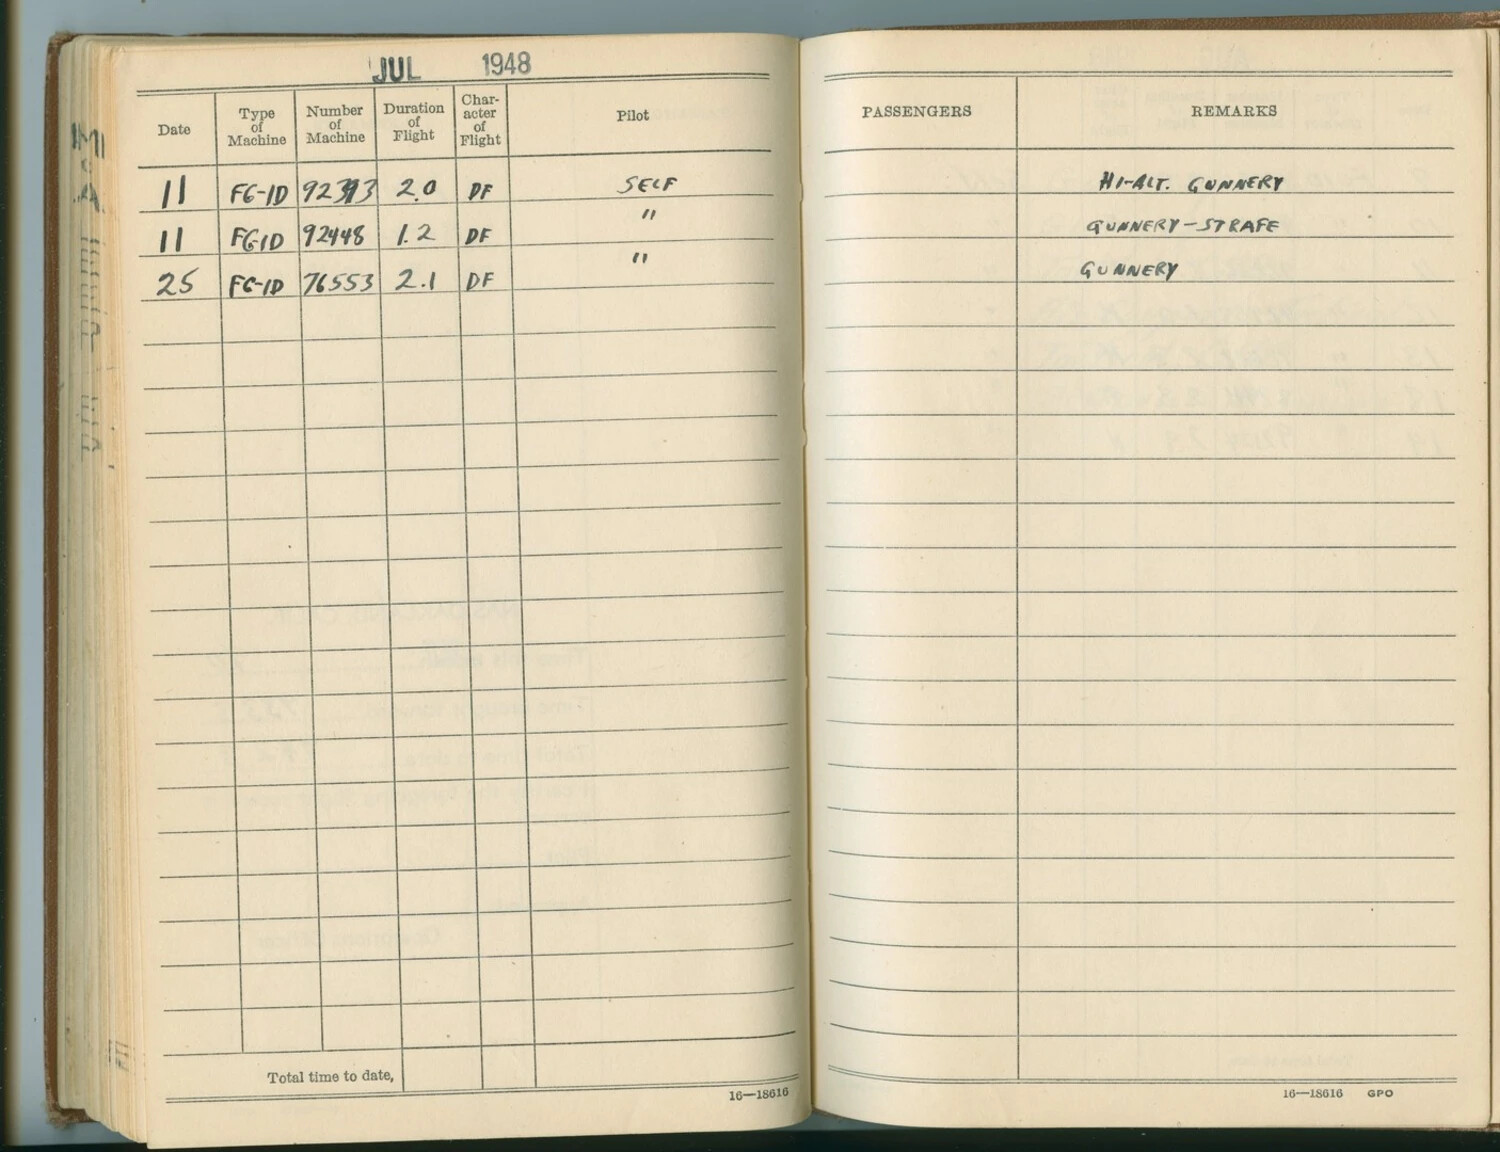 JUL 1948
Date Type of Machine Number of Machine Duration of Flight Char-acter of Flight Pilot PASSENGERS REMARKS
11 FG-1D 2.0 DF SELF HI-ALT. GUNNERY
11 FG1D 92448 1.2 DF " GUNNERY-STRAFE
25 FG-1D 76553 2.1 DF " GUNNERY
Total time to date,
16—18616
16—18616 GPO